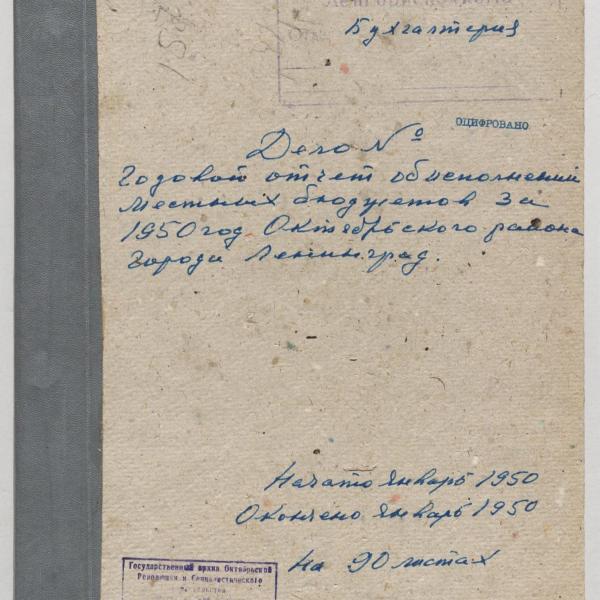 Бухгалтерия
ОЦИФРОВАНО
Дело №
Годовой отчет об исполнении
Местных бюджетов за
1950 год Октябрьского района
города Ленинград.
Начато январь 1950
Окончено январь 1950
На 90 листах
Государственный архив Октябрьской
Революции и Социалистического